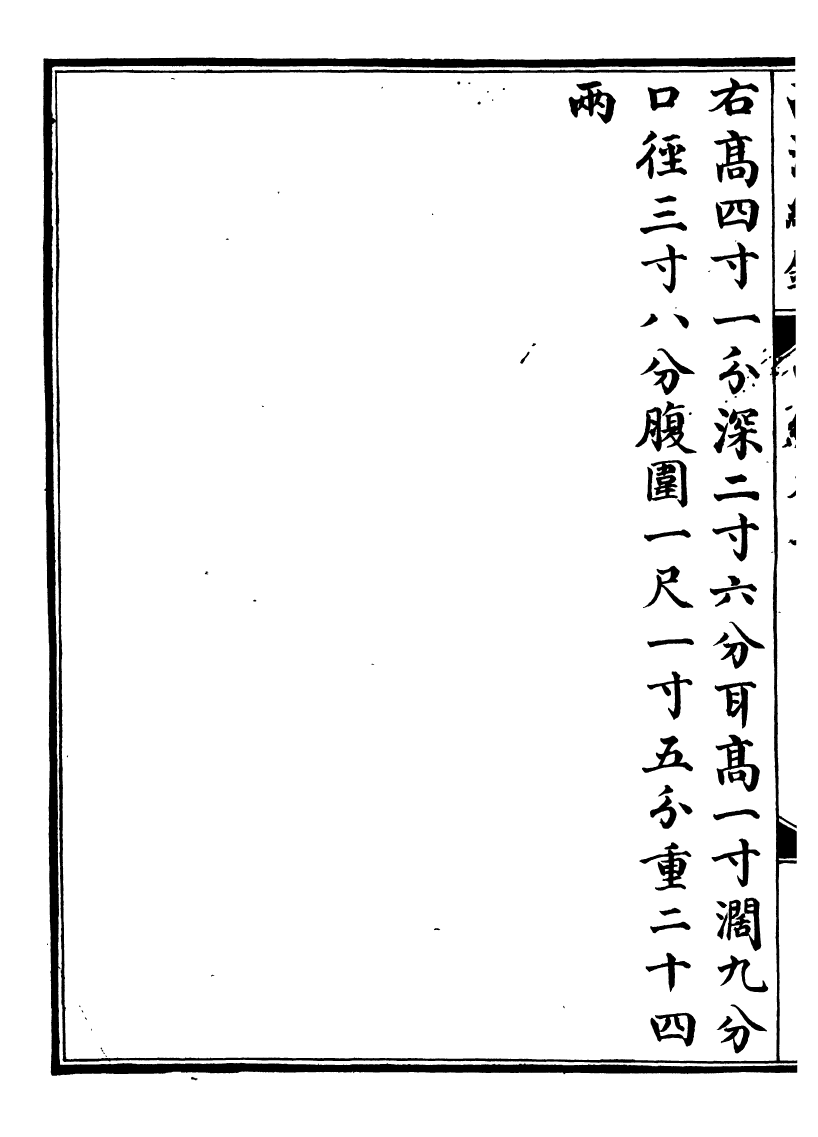 右髙四寸一分深二寸六分耳髙一寸濶九分
口徑三寸八分腹圍一尺一寸五分重二十四
兩